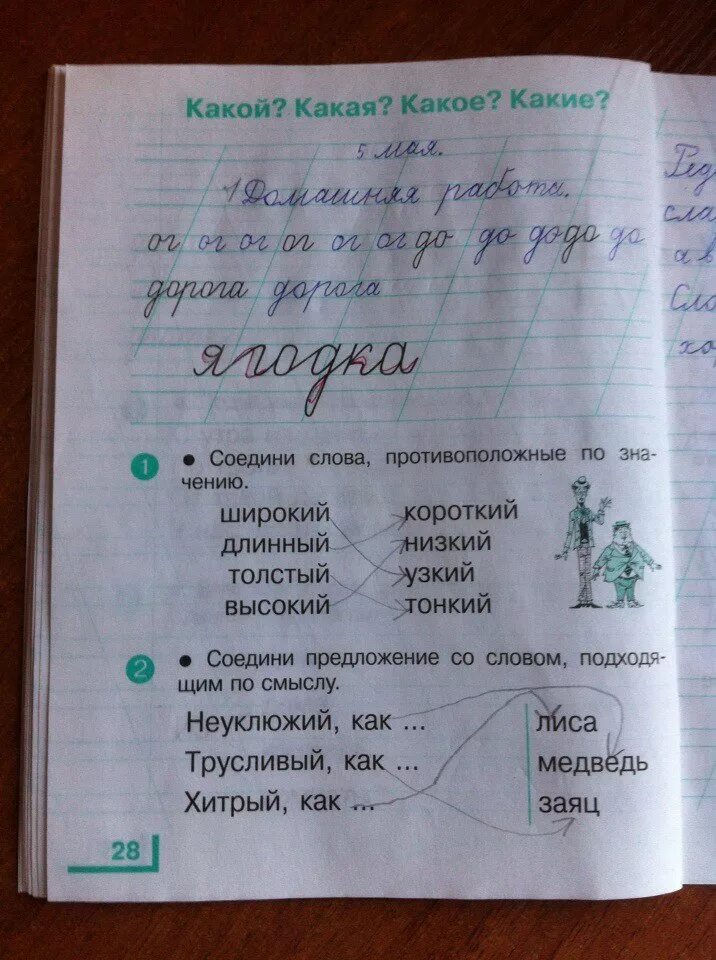 Какой? Какая? Какое? Какие?
5 мая.
Домашняя работа.
ог ог ог ог ог ог до до до до до
дорога дорога
ягодка
1 • Соедини слова, противоположные по зна-
чению.
широкий короткий
длинный низкий
толстый узкий
высокий тонкий
2 • Соедини предложение со словом, подходя-
щим по смыслу.
Неуклюжий, как ... лиса
Трусливый, как ... медведь
Хитрый, как ... заяц
28
сла
ав
хо